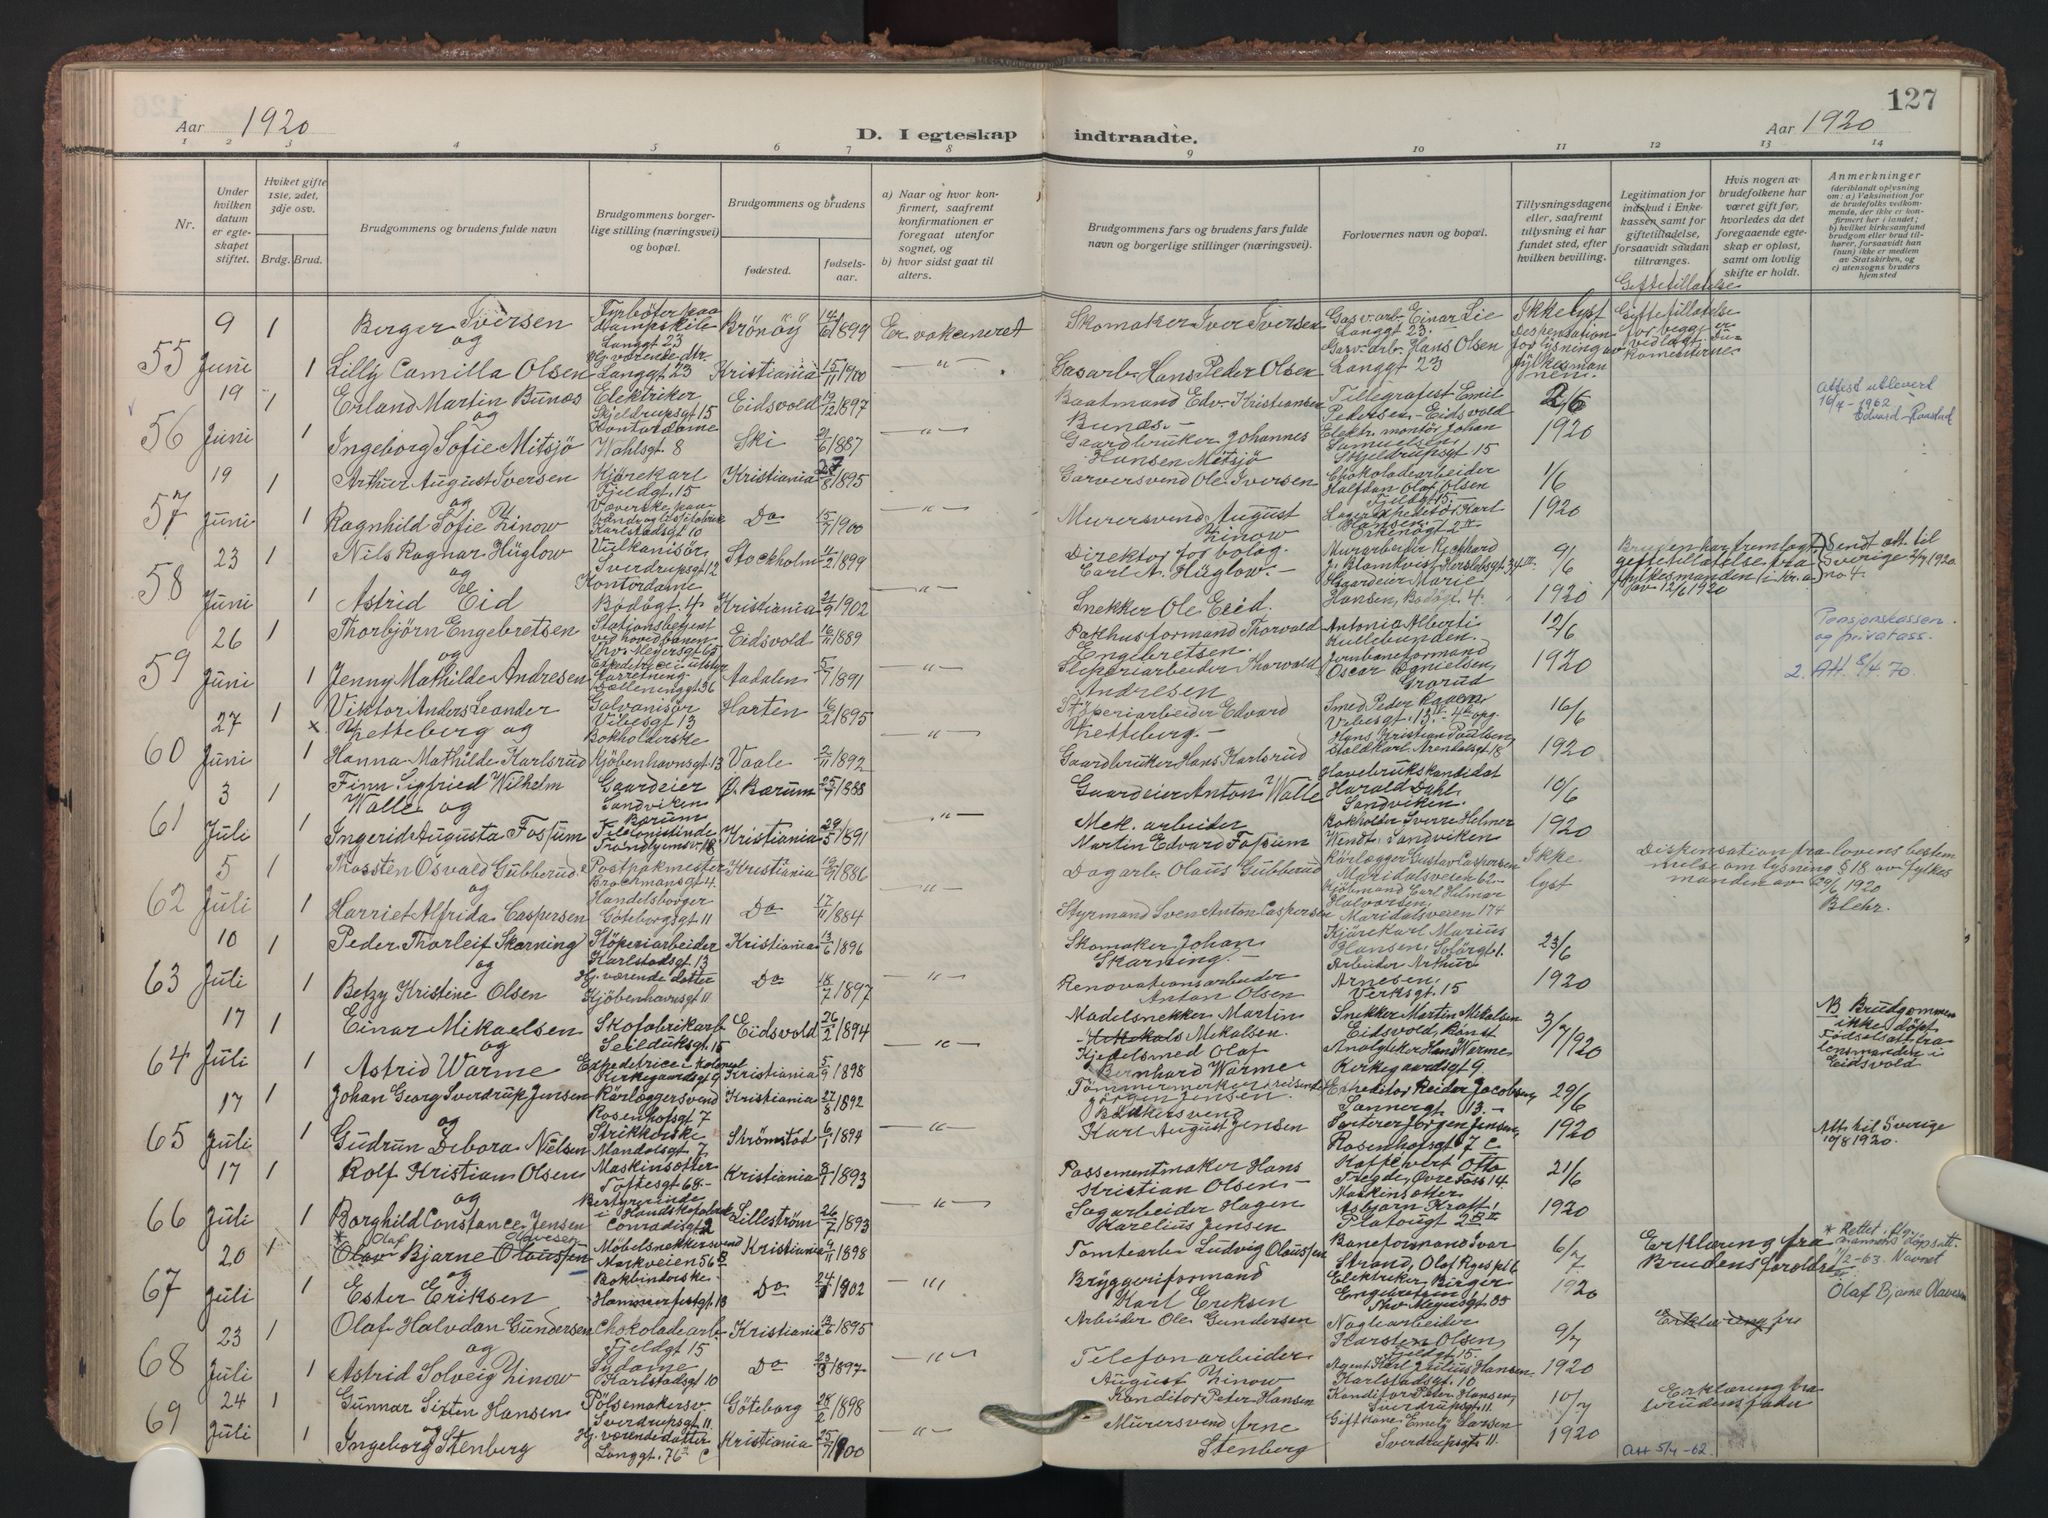 127
Aar 1920
D. I egteskap indtraadte.
Aar 1920
1 2 3 4 5 6 7 8 9 10 11 12 13 14
Nr.
Under hvilken datum er egteskapet stiftet.
Hviket gifte 1ste, 2det, 3dje osv.
Brdg. Brud.
Brudgommens og brudens fulde navn
Brudgommens borgerlige stilling (næringsvei) og bopæl.
Brudgommens og brudens
fødested.
fødselsaar.
a) Naar og hvor konfirmert, saafremt konfirmationen er foregaat utenfor sognet, og
b) hvor sidst gaat til alters.
Brudgommens fars og brudens fars fulde navn og borgerlige stillinger (næringsvei).
Forlovernes navn og bopæl.
Tillysningsdagene eller, saafremt tillysning ei har fundet sted, efter hvilken bevilling.
Legitimation for indskud i Enkekassen samt for giftetilladelse, forsaavidt saadan tiltrænges.
Hvis nogen av brudefolkene har været gift før, hvorledes da det foregaaende egteskap er opløst, samt om lovlig skifte er holdt.
Anmerkninger
(deriblandt oplysning om: a) Vaksination for de brudefolks vedkommende, der ikke er konfirmert her i landet; b) hvilket kirkesamfund brudgom eller brud tilhører, forsaavidt han (hun) ikke er medlem av Statskirken, og c) utensogns bruders hjemsted
Giftetilladelse
55 9 Juni 1 Birger Iversen og Fyrbøter paa Dampskib Langgt 23 Brönöy 14/6 1899 Er vaksineret Skomaker Iver Iversen Gasv.arb. Einar Lie Langgt 23. Ikke lyst Dispensation for lysning av fylkesmannen. Giftetilladelse for begge er vidlagt dokumenterne
1 Lilly Camilla Olsen Hj. værende dtr. Langgt 23 Kristiania 15/11 1900 —"— Gasarb. Hans Peder Olsen Gasv. arb. Hans Olsen Langgt 23
56 19 Juni 1 Erland Martin Bunæs og Elektriker Skjeldrupsgt 15 Eidsvold 12/12 1897 Baatmand Edv. Kristiansen Bunæs.— Tillegrafest Emil Pedersen – Eidsvold 2/6 1920 Attest utlevert 16/7 - 1962 Edvard
1 Ingeborg Sofie Mitsjö Kontordame Wahlsgt 8 Ski 21/6 1887 —"— Gaardbruker Johannes Hansen Mitsjö Elektr. montör Johan Samuelsen, Skjeldrupsgt 15
57 19 Juni 1 Arthur August Iversen og Kjörekarl Fjeldgt. 15 Kristiania 27/8 1895 Garversvend Ole Iversen Chokoladearbeider Halfdan Olaf Olsen Fjeldgt 15.— 1/6 1920
1 Ragnhild Sofie Zinow Væverske paa Karlstadsgt 10 Do 15/7 1900 —"— Murersvend August Zinow Lagerexpeditör Karl Hansen.
58 23 Juni 1 Nils Ragnar Hüglow og Vulkanisör Sverdrupsgt 12 Stockholm 4/2 1899 Direktör for bolag. Carl A. Hüglow.— Murarbeider Richard J. Blomkvist 9/6 1920 Bruden har fremlagt giftetilladelse fra fylkesmanden i Kr.a av 12/6 1920 Sendt att. til Sverige 2/7 1920. no 4.
1 Astrid Eid Kontordame Bodögt. 4 Kristiania 21/9 1902 —"— Snekker Ole Eid. Gaardeier Marie Hansen, Bodögt. 4.
59 26 Juni 1 Thorbjörn Engebretsen og Stationsbetjent ved hovedbanen Thv. Meyersgt 65 Eidsvold 16/11 1889 Pakhusformand Thorvald Engebretsen. Antonie Alberti Kullebunden. 12/6 1920 Pensjonskassen og privatass. 2. Att 8/4 70.
1 Jenny Mathilde Andresen Expeditrice i utstyrforretning Dælleninggt 36 Aadalen 5/7 1891 Sliperiarbeider Thorvald Andresen Jernbaneformand Oscar Danielsen, Grorud
60 27 Juni 1 Viktor Anders Leander x Zetteberg og Galvanisör Vibesgt. 13 Horten 16/2 1895 Stöperiarbeider Edvard Zetteberg.— Smed Peder Vibesgt. 13 – 4de opg. 16/6 1920
1 Hanna Mathilde Karlsrud Bokholderske Kjöbenhavnsgt. 13 Vaale 2/11 1892 —"— Gaardbruker Hans Karlsrud Hans Kristian Paulsen, Staldkarl. Arendalsgt 18
61 3 Juli 1 Finn Sigfried Wilhelm Walle og Gaardeier Sandviken Bærum Ø. Bærum 25/7 1888 Gaardeier Anton Walle Havebrukskandidat Harald Dahl Sandviken. 10/6 1920
1 Ingerid Augusta Fossum Telefonistinde Trondhjemsv. 18 Kristiania 29/5 1891 —"— Mek. arbeider Martin Edvard Fossum Bokholder Sverre Helmer Wendt, Sandviken
62 5 Juli 1 Thorsten Osvald Gubberud og Postpakmester Brochmansgt 4. Kristiania 19/9 1886 Dagarb. Olaus Gubberud Rörlægger Gustav Caspersen Maridalsveien 62.— Ikke lyst Dispensation fra lovens bestemmelse om lysning § 18 av fylkesmanden av 29/6 1920 Blehr.
1 Harriet Alfrida Caspersen Handelsborger Göteborgsgt 11 Do 17/11 1884 —"— Styrmand Sven Anton Caspersen Kjöbmand Carl Hilmar Halvorsen, Maridalsveien 174
63 10 Juli 1 Peder Thorleif Skarning og Stöperiarbeider Karlstadsgt 13 Kristiania 13/6 1896 Skomaker Johan Skarning.— Kjörekarl Marius Hansen, Solörgt 1. 23/6 1920
1 Betzy Kristine Olsen Hj. værende datter Kjöbenhavnsgt 11 Do 18/7 1897 —"— Renovationsarbeider Anton Olsen Arbeider Arthur Arnesen, Verksgt. 15
64 17 Juli 1 Einar Mikaelsen og Skofabrikarb Seilduksgt. 15 Eidsvold 26/2 1894 Modelsnekker Martin Mekalsen. Snekker Martin Mikalsen Eidsvold, Bönst 3/7 1920 NB Brudgommen ikke döpt. Födselsatt. fra lensmanden i Eidsvold
1 Astrid Warme Expeditrice i kolonial Kirkegaardsgt 9 Kristiania 5/9 1898 —"— Kjedelsmed Olaf Bernhard Warme Analytiker Hans Warme, Kirkegaardsgt 9.
65 17 Juli 1 Johan Georg Sverdrup Jensen og Rörlæggersvend Rosenhofsgt 7 Kristiania 27/8 1892 Tömmermerker Jörgen Jensen. Expeditör Reidar Jacobsen, Sannergt. 13.— 29/6 1920
1 Gudrun Debora Nielsen Strikkerske Mandalsgt. 7 Strömstad 6/1 1894 —"— Bakersvend Karl August Jensen Sorterer Jörgen Jensen, Rosenhofsgt 7 c Att. til Sverige 10/8 1920.
66 17 Juli 1 Rolf Kristian Olsen og Maskinsætter Toftesgt 68.— Kristiania 8/7 1893 Possementmaker Hans Kristian Olsen— Kaffevert Otto Tregde, Övre Foss 14 21/6 1920
1 Borghild Constance Jensen Bestyrerinde i Handskefabrik Conradisgt. 2 Lilleström 26/7 1893 —"— Sagarbeider Hagen Karelius Jensen Maskinsætter Asbjørn Kraft, Platougt 2
67 20 Juli 1 * Olaf Olavesen Olav Bjarne Olaussen og Möbelsnekkersvend Markveien 56 B Kristiania 9/11 1898 Tomtearb. Ludvig Olaussen Baneformand Ivar Strand, Olaf Ryes pl 6 6/7 1920 Erklæring fra Brudens foreldre * Rettet iflg. mannens döpsatt. 1/2-63. Navnet Olaf Bjarne Olavesen
1 Ester Eriksen Bokbinderske Hammerfestgt. 13 Do 24/1 1902 —"— Bryggeriformand Karl Eriksen Elektriker Birger Engebretsen Thv. Meyersgt. 85
68 23 Juli 1 Olaf Halvdan Gundersen og Chokoladearb. Fjeldgt 15 Kristiania 1895 Arbeider Ole Gundersen Naglearbeider Karsten Olsen, Fjeldgt 15. 9/7 1920 Erklæring fra
1 Astrid Solveig Zinow Sydame Karlstadsgt 10 Do 23/3 1897 —"— Telefonarbeider August Zinow Agent Karl Julius Hansen. Karlstadsgt. 10
69 24 Juli 1 Gunnar Sixten Hansen og Pölsemakersv. Sverdrupsgt. 11 Göteborg 28/2 1898 Konditor Peter Hansen Konditor Peter Hansen, Sverdrupsgt. 11. 10/7 1920 Erklæring fra brudens fader
1 Ingeborg Stenberg Hj. værende datter Langgt. 76 c Kristiania 25/7 1900 —"— Murersvend Arne Stenberg Gift kone Emely Larsen Sverdrupsgt. 11. Att 5/4-62.